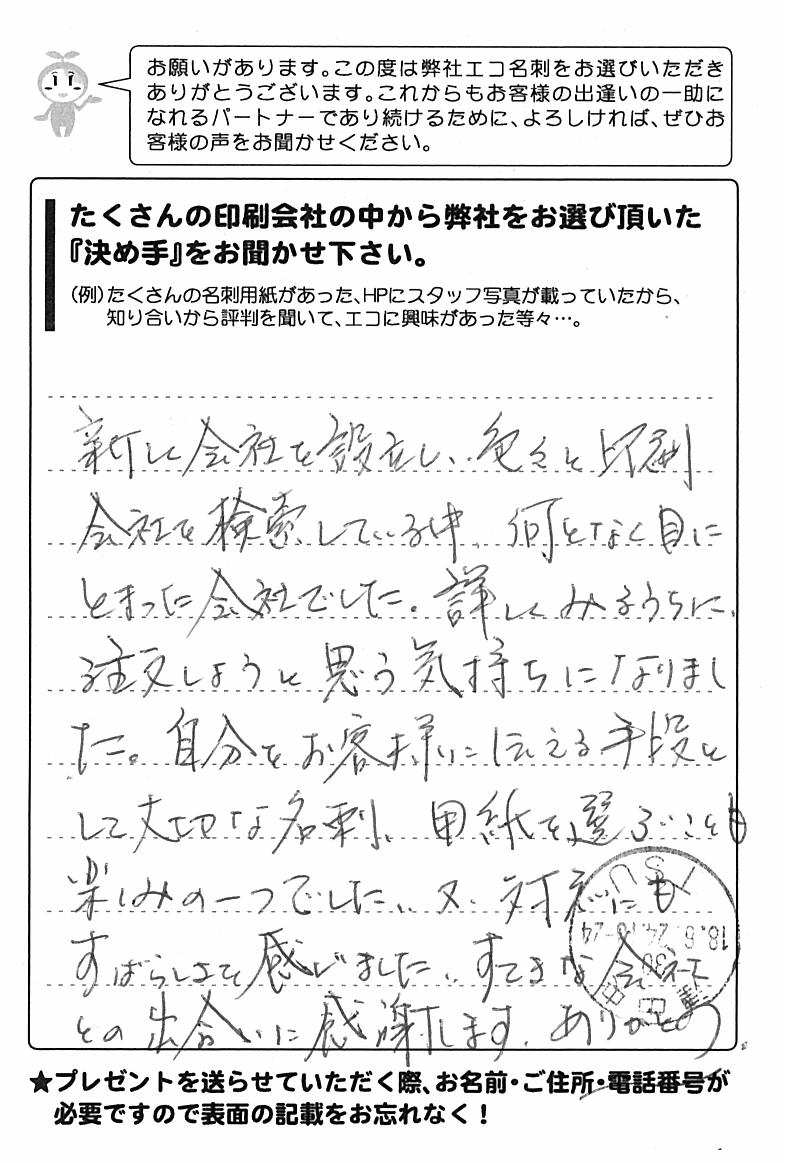 お願いがあります。この度は弊社エコ名刺をお選びいただき
ありがとうございます。これからもお客様の出逢いの一助に
なれるパートナーであり続けるために、よろしければ、ぜひお
客様の声をお聞かせください。
たくさんの印刷会社の中から弊社をお選び頂いた
『決め手』をお聞かせ下さい。
(例)たくさんの名刺用紙があった、HPにスタッフ写真が載っていたから、
知り合いから評判を聞いて、エコに興味があった等々…。
新しく会社を設立し、色々と印刷
会社を検索している中、何となく目に
とまった会社でした。詳しくみるうちに、
注文しようと思う気持ちになりまし
た。自分をお客様に伝える手段と
して大切な名刺、用紙を選ぶことも
楽しみの一つでした。又、対応にも
すばらしさを感じました。すてきな会社
との出会いに感謝します。ありがとう
★プレゼントを送らせていただく際、お名前・ご住所・電話番号が
必要ですので表面の記載をお忘れなく!